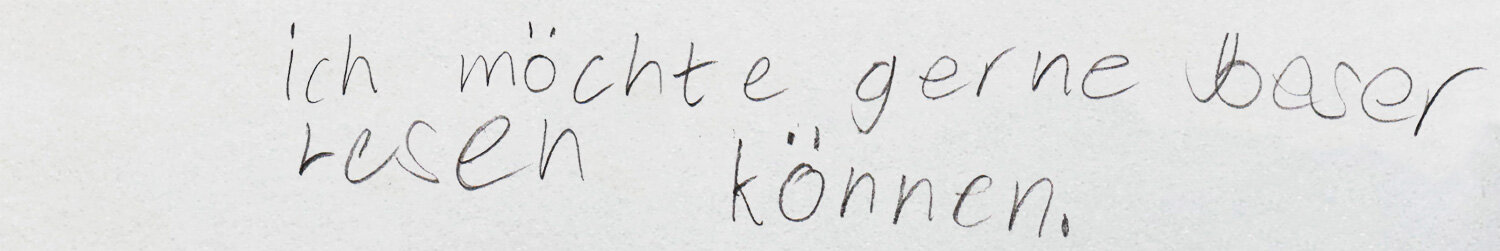 ich möchte gerne beser
resen können.